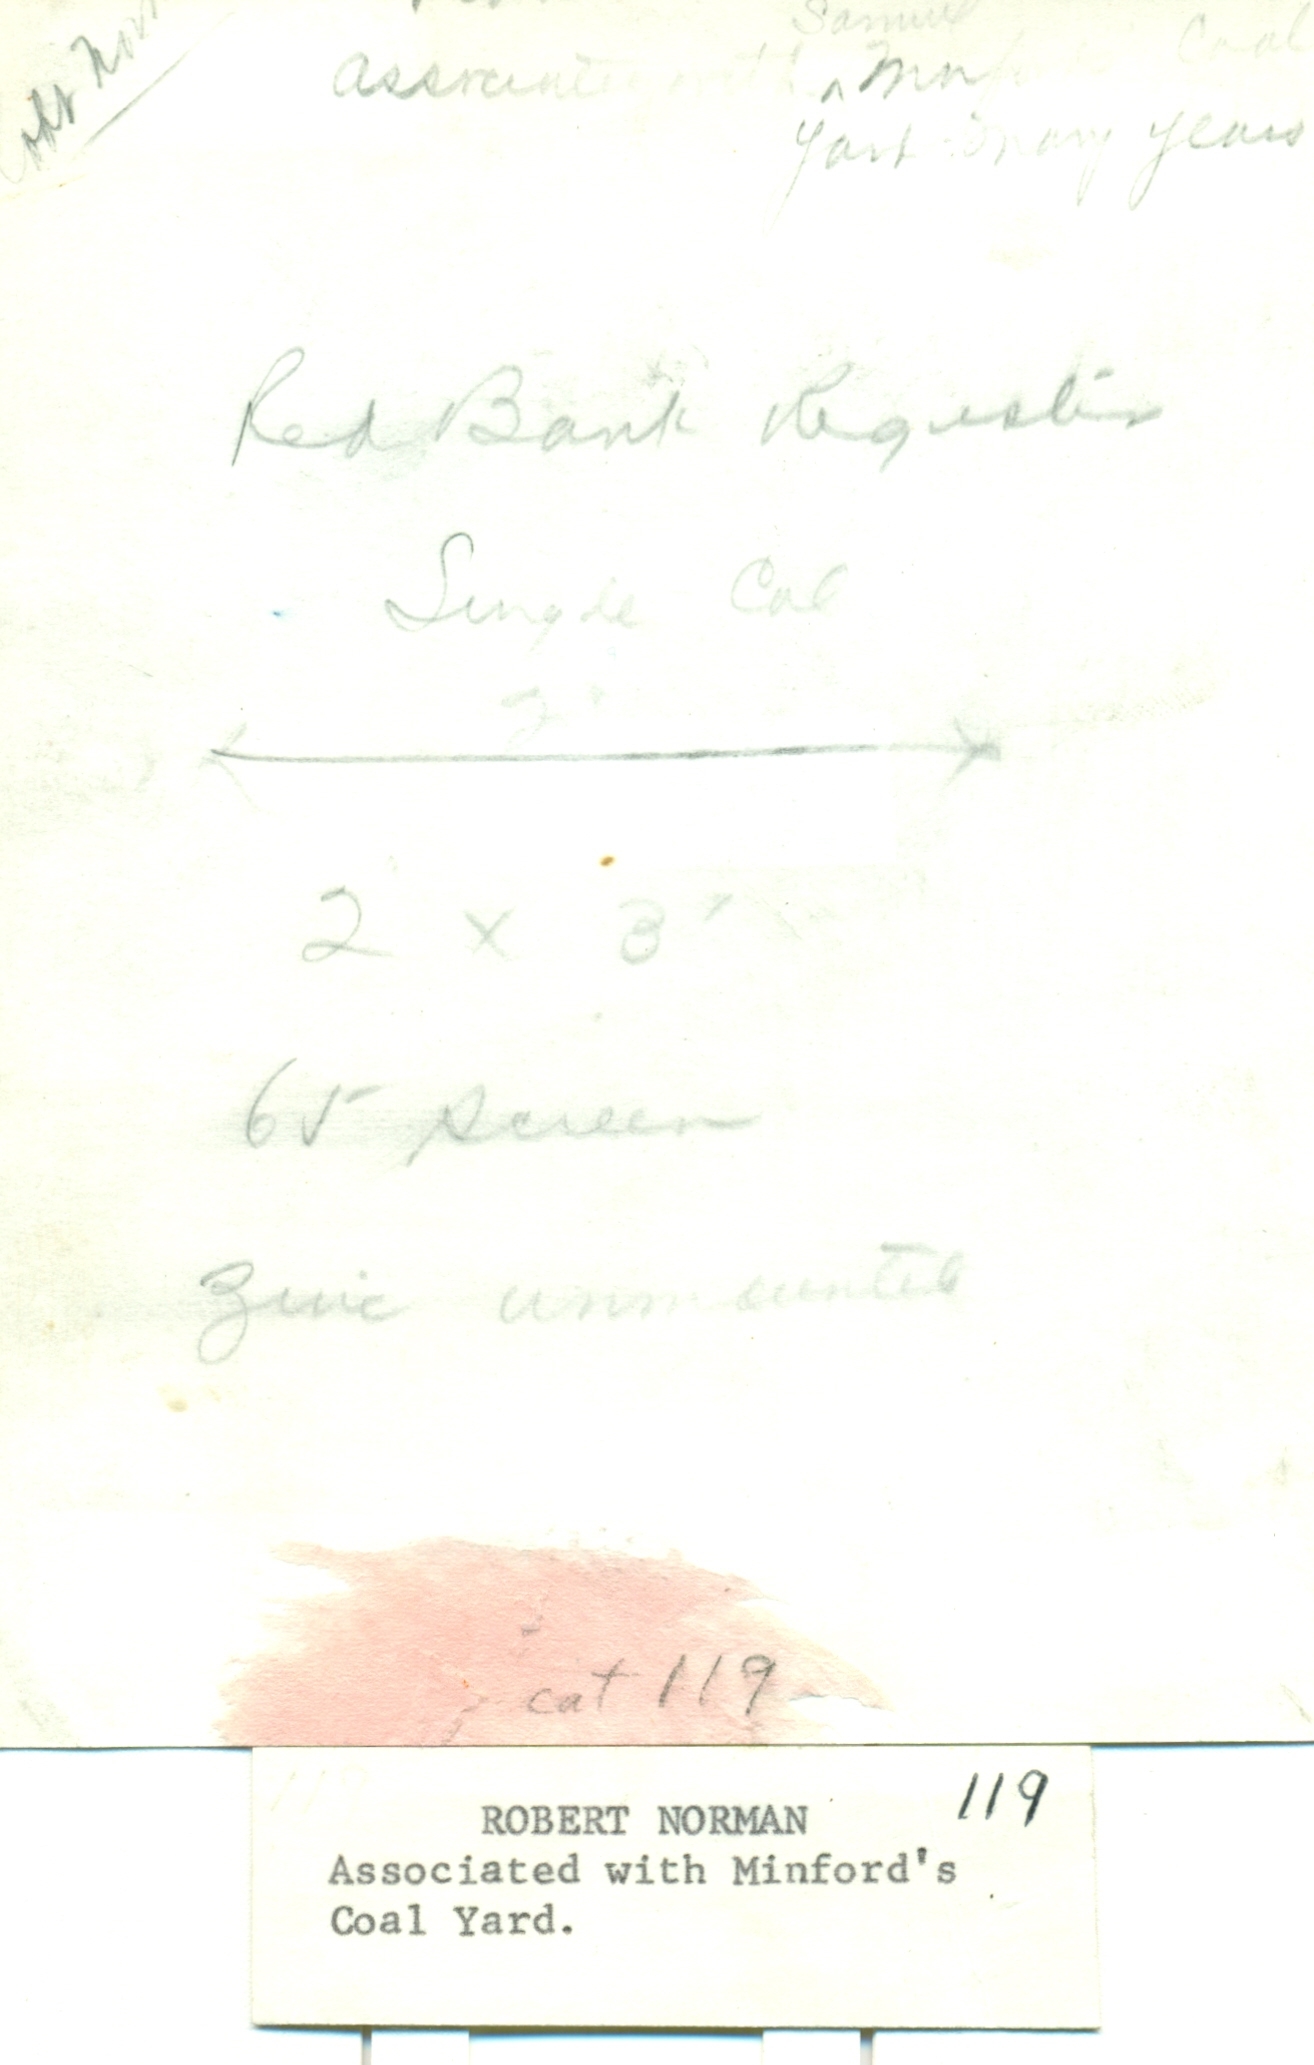 Samuel
associated with ^ Morford Coal
Yard many years
Red Bank Register
Single Col
2"
2 x 3"
65 screen
Zinc unmounted
cat 119
119
ROBERT NORMAN
Associated with Minford's
Coal Yard.